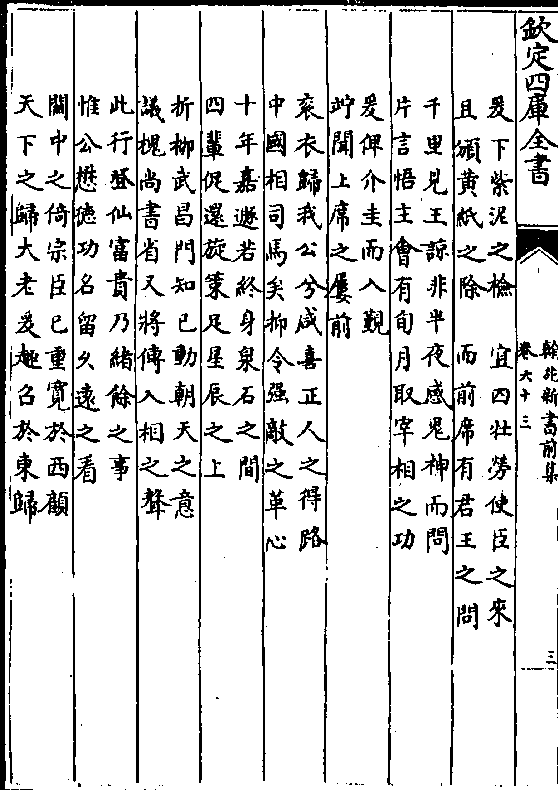 欽定四庫全書
翰苑新書前集
卷六十三
三
爰下紫泥之檢　宜四牡勞使臣之來
且頒黃紙之除　而前席有君王之問
千里見王諒非半夜感鬼神而問
片言悟主會有旬月取宰相之功
爰俾介圭而入覲
竚聞上席之屢前
衮衣歸我公兮咸喜正人之得路
中國相司馬矣抑令强敵之革心
十年嘉遯若終身泉石之間
四輩促還旋策足星辰之上
折柳武昌門知已動朝天之意
議槐尚書省又將傳入相之聲
此行登仙富貴乃緒餘之事
惟公懋徳功名留久遠之看
關中之倚宗臣已重寛於西顧
天下之歸大老爰趣召於東歸